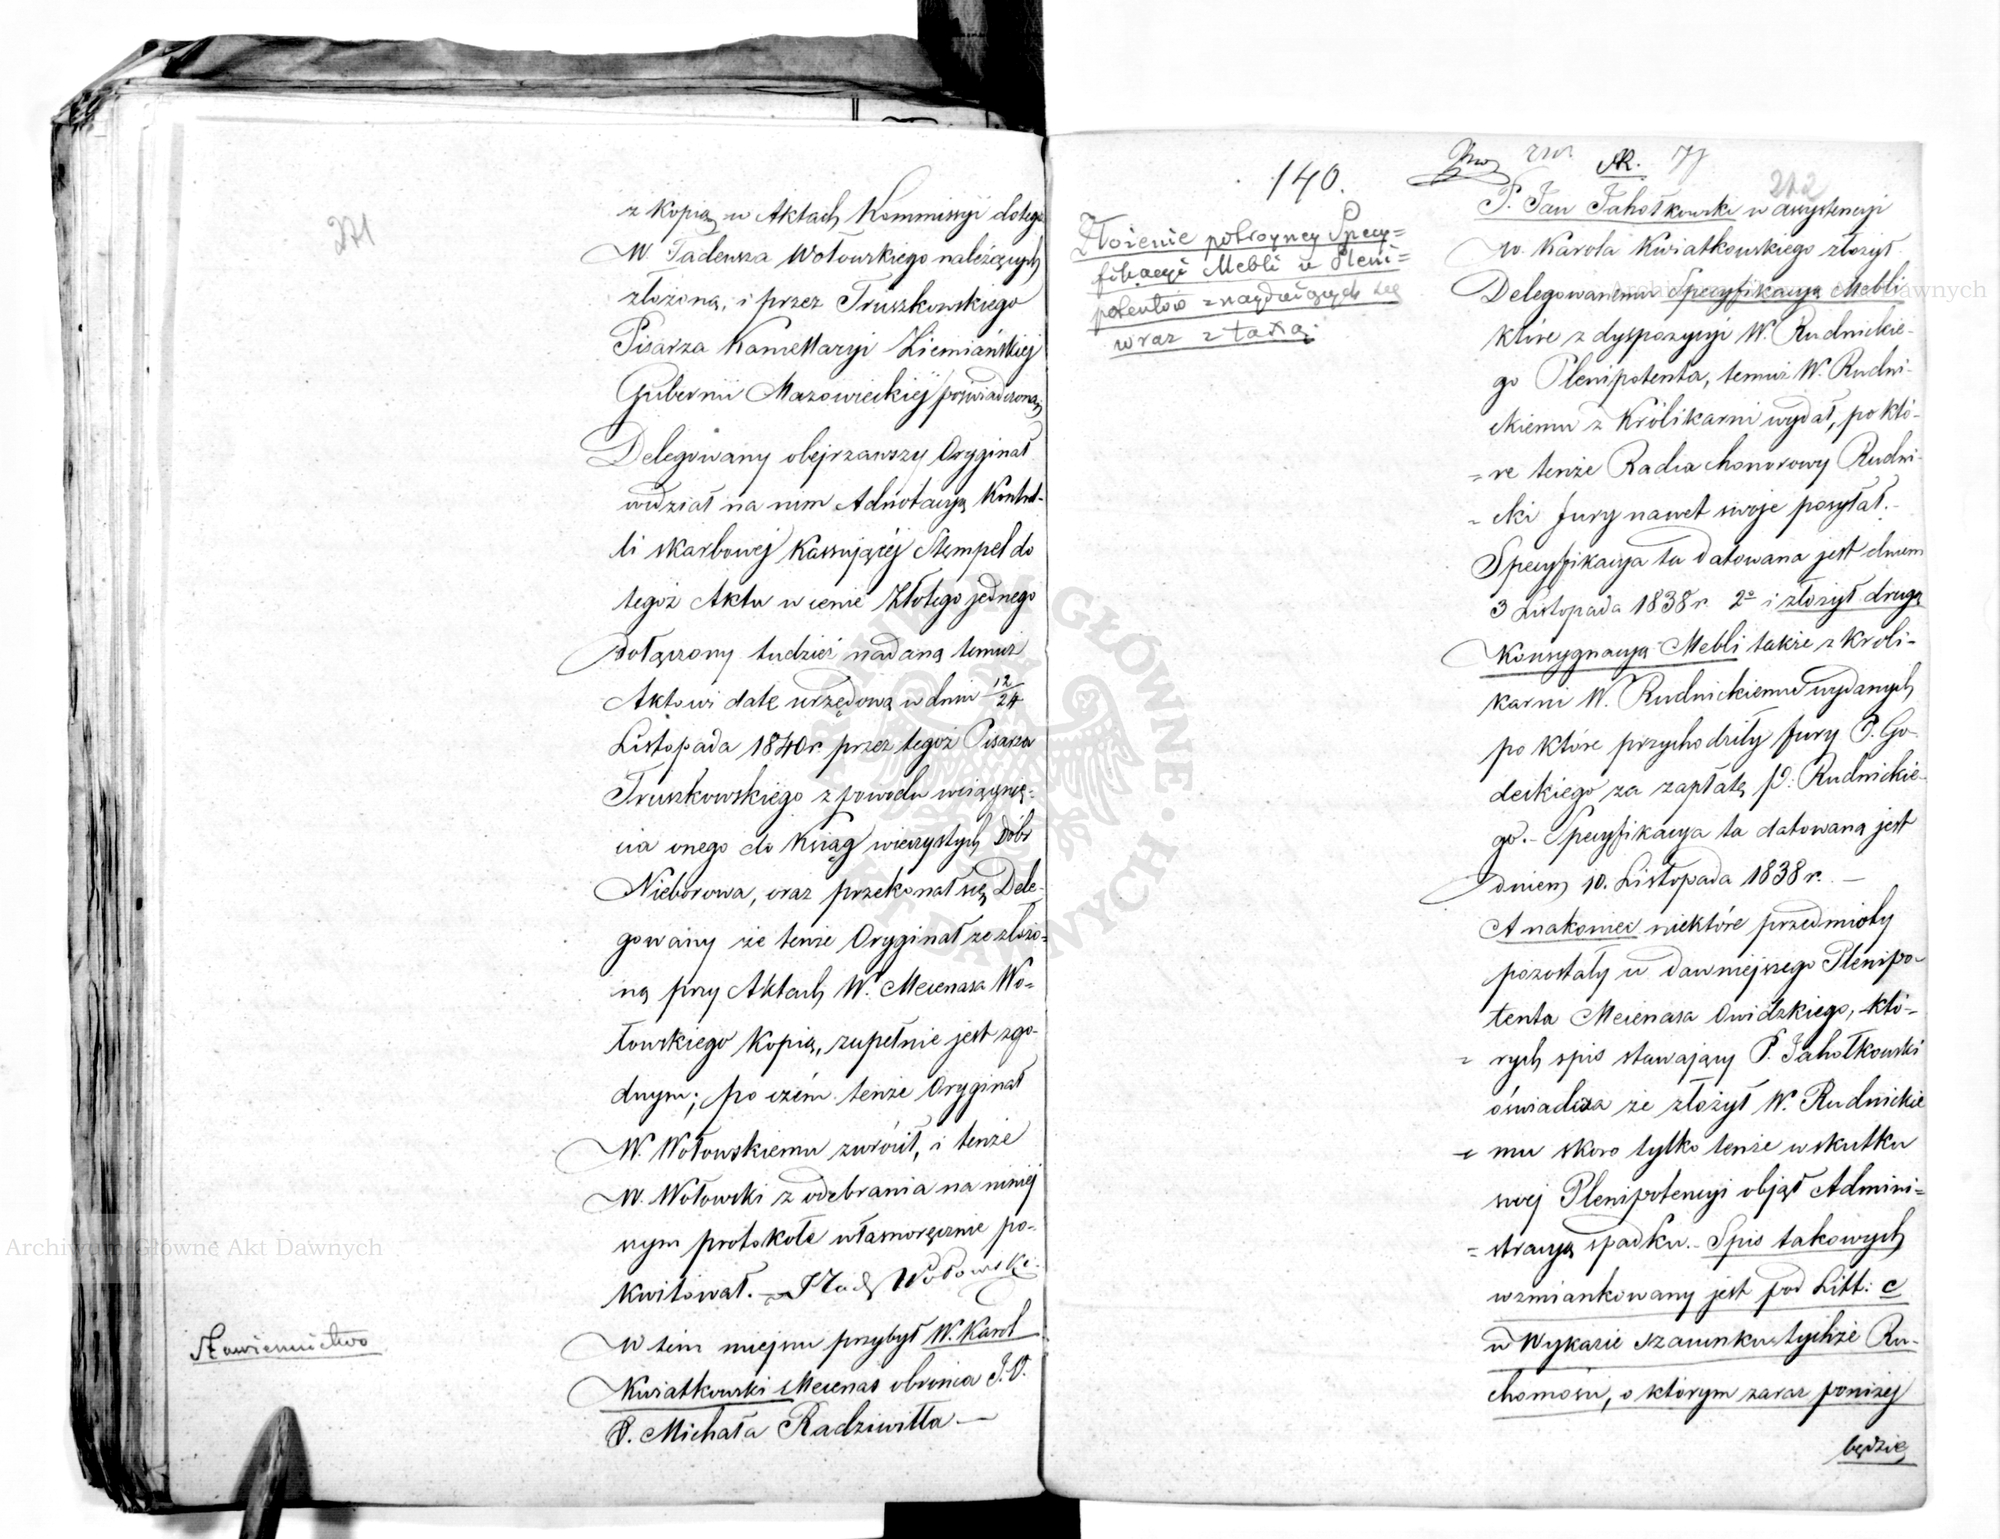 271
z kopią w Aktach Kommissyi do tego
W. Tadeusza Wołowskiego należących
złożoną, i przez Truszkowskiego
Pisarza Kancellaryi Ziemiańskiej
Gubernii Mazowieckiej poświadczoną;
Delegowany obejrzawszy Oryginał
widział na nim Adnotacyą Kontrol-
li skarbowej Kassującej Stempel do
tegoż Aktu w cenie Złotego jednego
dołączony tudzież nadaną temuż
Aktowi datę urzędową w dniu 12/24
Listopada 1840 r. przez tegoż Pisarza
Truszkowskiego z powodu wciągnię-
cia onego do Ksiąg wieczystych Dóbr
Nieborowa, oraz przekonał się Dele-
gowany że tenże Oryginał ze złożo-
ną przy Aktach W. Mecenasa Wo-
łowskiego Kopią, zupełnie jest zgo-
dnym; po czém tenże Oryginał
W. Wołowskiemu zwrócił, i tenże
W. Wołowski z odebrania na niniej
szym protokole własnoręcznie po-
kwitował. Wołowski.
Stawiennictwo
W tém miejscu przybył W. Karol
Kwiatkowski Mecenas obrońca J.O.
X. Michała Radziwiłła —
140.
77
212
Złożenie potrójnej Specy=
fikacyi Mebli u Pleni=
potentów znajdujących się
wraz z taxą.
P. Jan Jahołkowski w assystencyi
W. Karola Kwiatkowskiego złożył
Delegowanemu Specyfikacyą Mebli
które z dyspozycyi W. Rudnickie-
go Plenipotenta, temuż W. Rudni-
ckiemu z Królikarni wydał, po któ-
=re tenże Radca honorowy Rudni-
=cki fury nawet swoje posyłał.-
Specyfikacya ta datowana jest dniem
3 Listopada 1838 r. 2º i złożył drugą
Konsygnacyą Mebli także z Kroli-
karni W. Rudnickiemu wydanych
po które przychodziły fury P. Go-
deckiego za zapłatą P. Rudnickie-
go.- Specyfikacya ta datowaną jest
dniem 10. Listopada 1838 r. —
A nakoniec niektóre przedmioty
pozostały u dawniejszego Plenipo-
tenta Mecenasa Owidzkiego, któ-
=rych spis stawający P. Jahołkowski
oświadcza że złożył W. Rudnickie
=mu skoro tylko tenże w skutku
swej Plenipotencyi objął Admini=
=stracyą spadku.- Spis takowych
wzmiankowany jest pod Litt: C
w Wykazie szacunku tychże Ru-
chomości, o którym zaraz poniżej
będzie
Archiwum Główne Akt Dawnych
Archiwum Główne Akt Dawnych
ARCHIWUM GŁÓWNE · AKT DAWNYCH ·